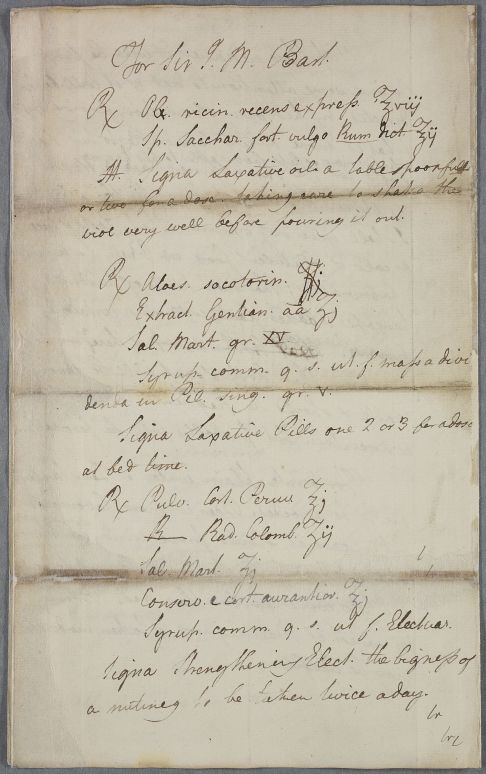 For Sir J. M. Bart.
Rx Ol. ricin. recens express. ℥viij
Sp. Sacchar. fort. vulgo Rum dict ℥ij
M. Signa Laxative oil a table spoonfull
or two for a dose. taking care to shake the
viol very well before pouring it out.
Rx Aloes. socotorin.
Extract. Gentian. aa ʒj
Sal. Mart. gr. XV
Syrup. comm. q. s. ut f. massa divi
denda in Pil. sing. gr. v.
Signa Laxative Pills one 2 or 3 for a dose
at bed time.
Rx Pulv. Cort. Peruv ℥j
Rad. Colomb. ʒij
Sal. Mart. ʒj
Conserv. e cort. aurantior. ℥j
Syrup. comm. q. s. ut f. Electuar.
Signa Strengthening Elect. the bigness of
a nutmeg to be taken twice a day.